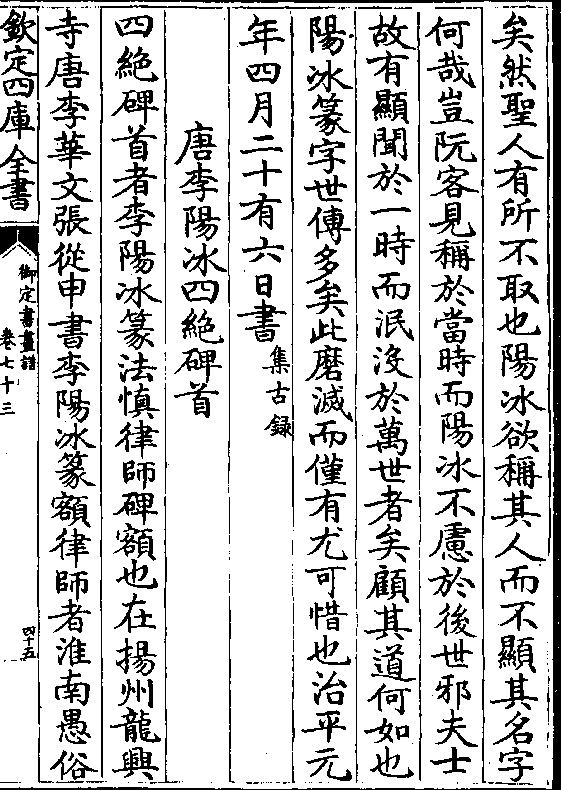 矣然聖人有所不取也陽冰欲稱其人而不顯其名字
何哉豈阮客見稱於當時而陽冰不慮於後世邪夫士
故有顯聞於一時而泯没於萬世者矣顧其道何如也
陽冰篆字世傳多矣此磨滅而僅有尤可惜也治平元
年四月二十有六日書集古録
唐李陽冰四絶碑首
四絶碑首者李陽冰篆法慎律師碑額也在揚州龍興
寺唐李華文張從申書李陽冰篆額律師者淮南愚俗
欽定四庫全書
御定書畫譜
卷七十三
四十五